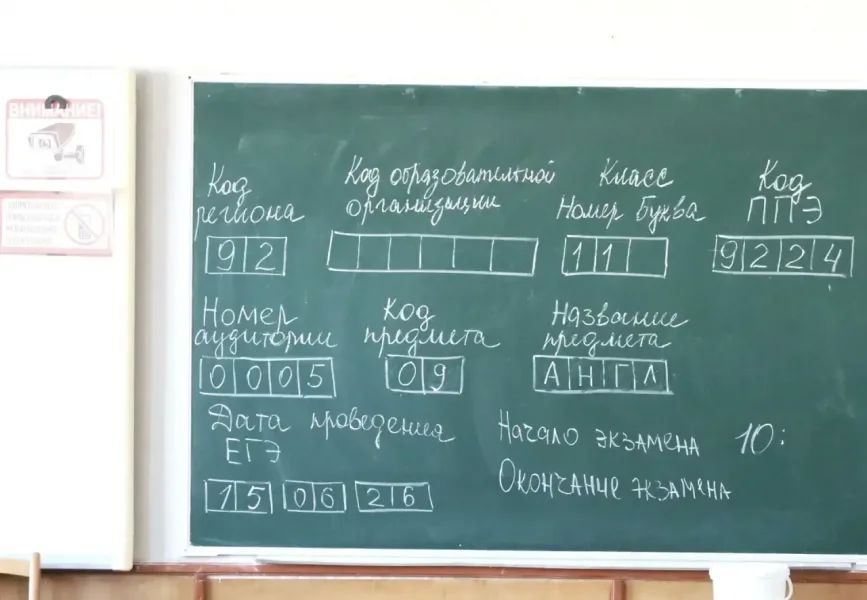 ВНИМАНИЕ!
Код региона
Код образовательной организации
Класс
Номер Буква
Код ППЭ
92
11
9224
Номер аудитории
Код предмета
Название предмета
0005
09
АНГЛ
Дата проведения
ЕГЭ
Начало экзамена 10:
Окончание экзамена
15 06 26